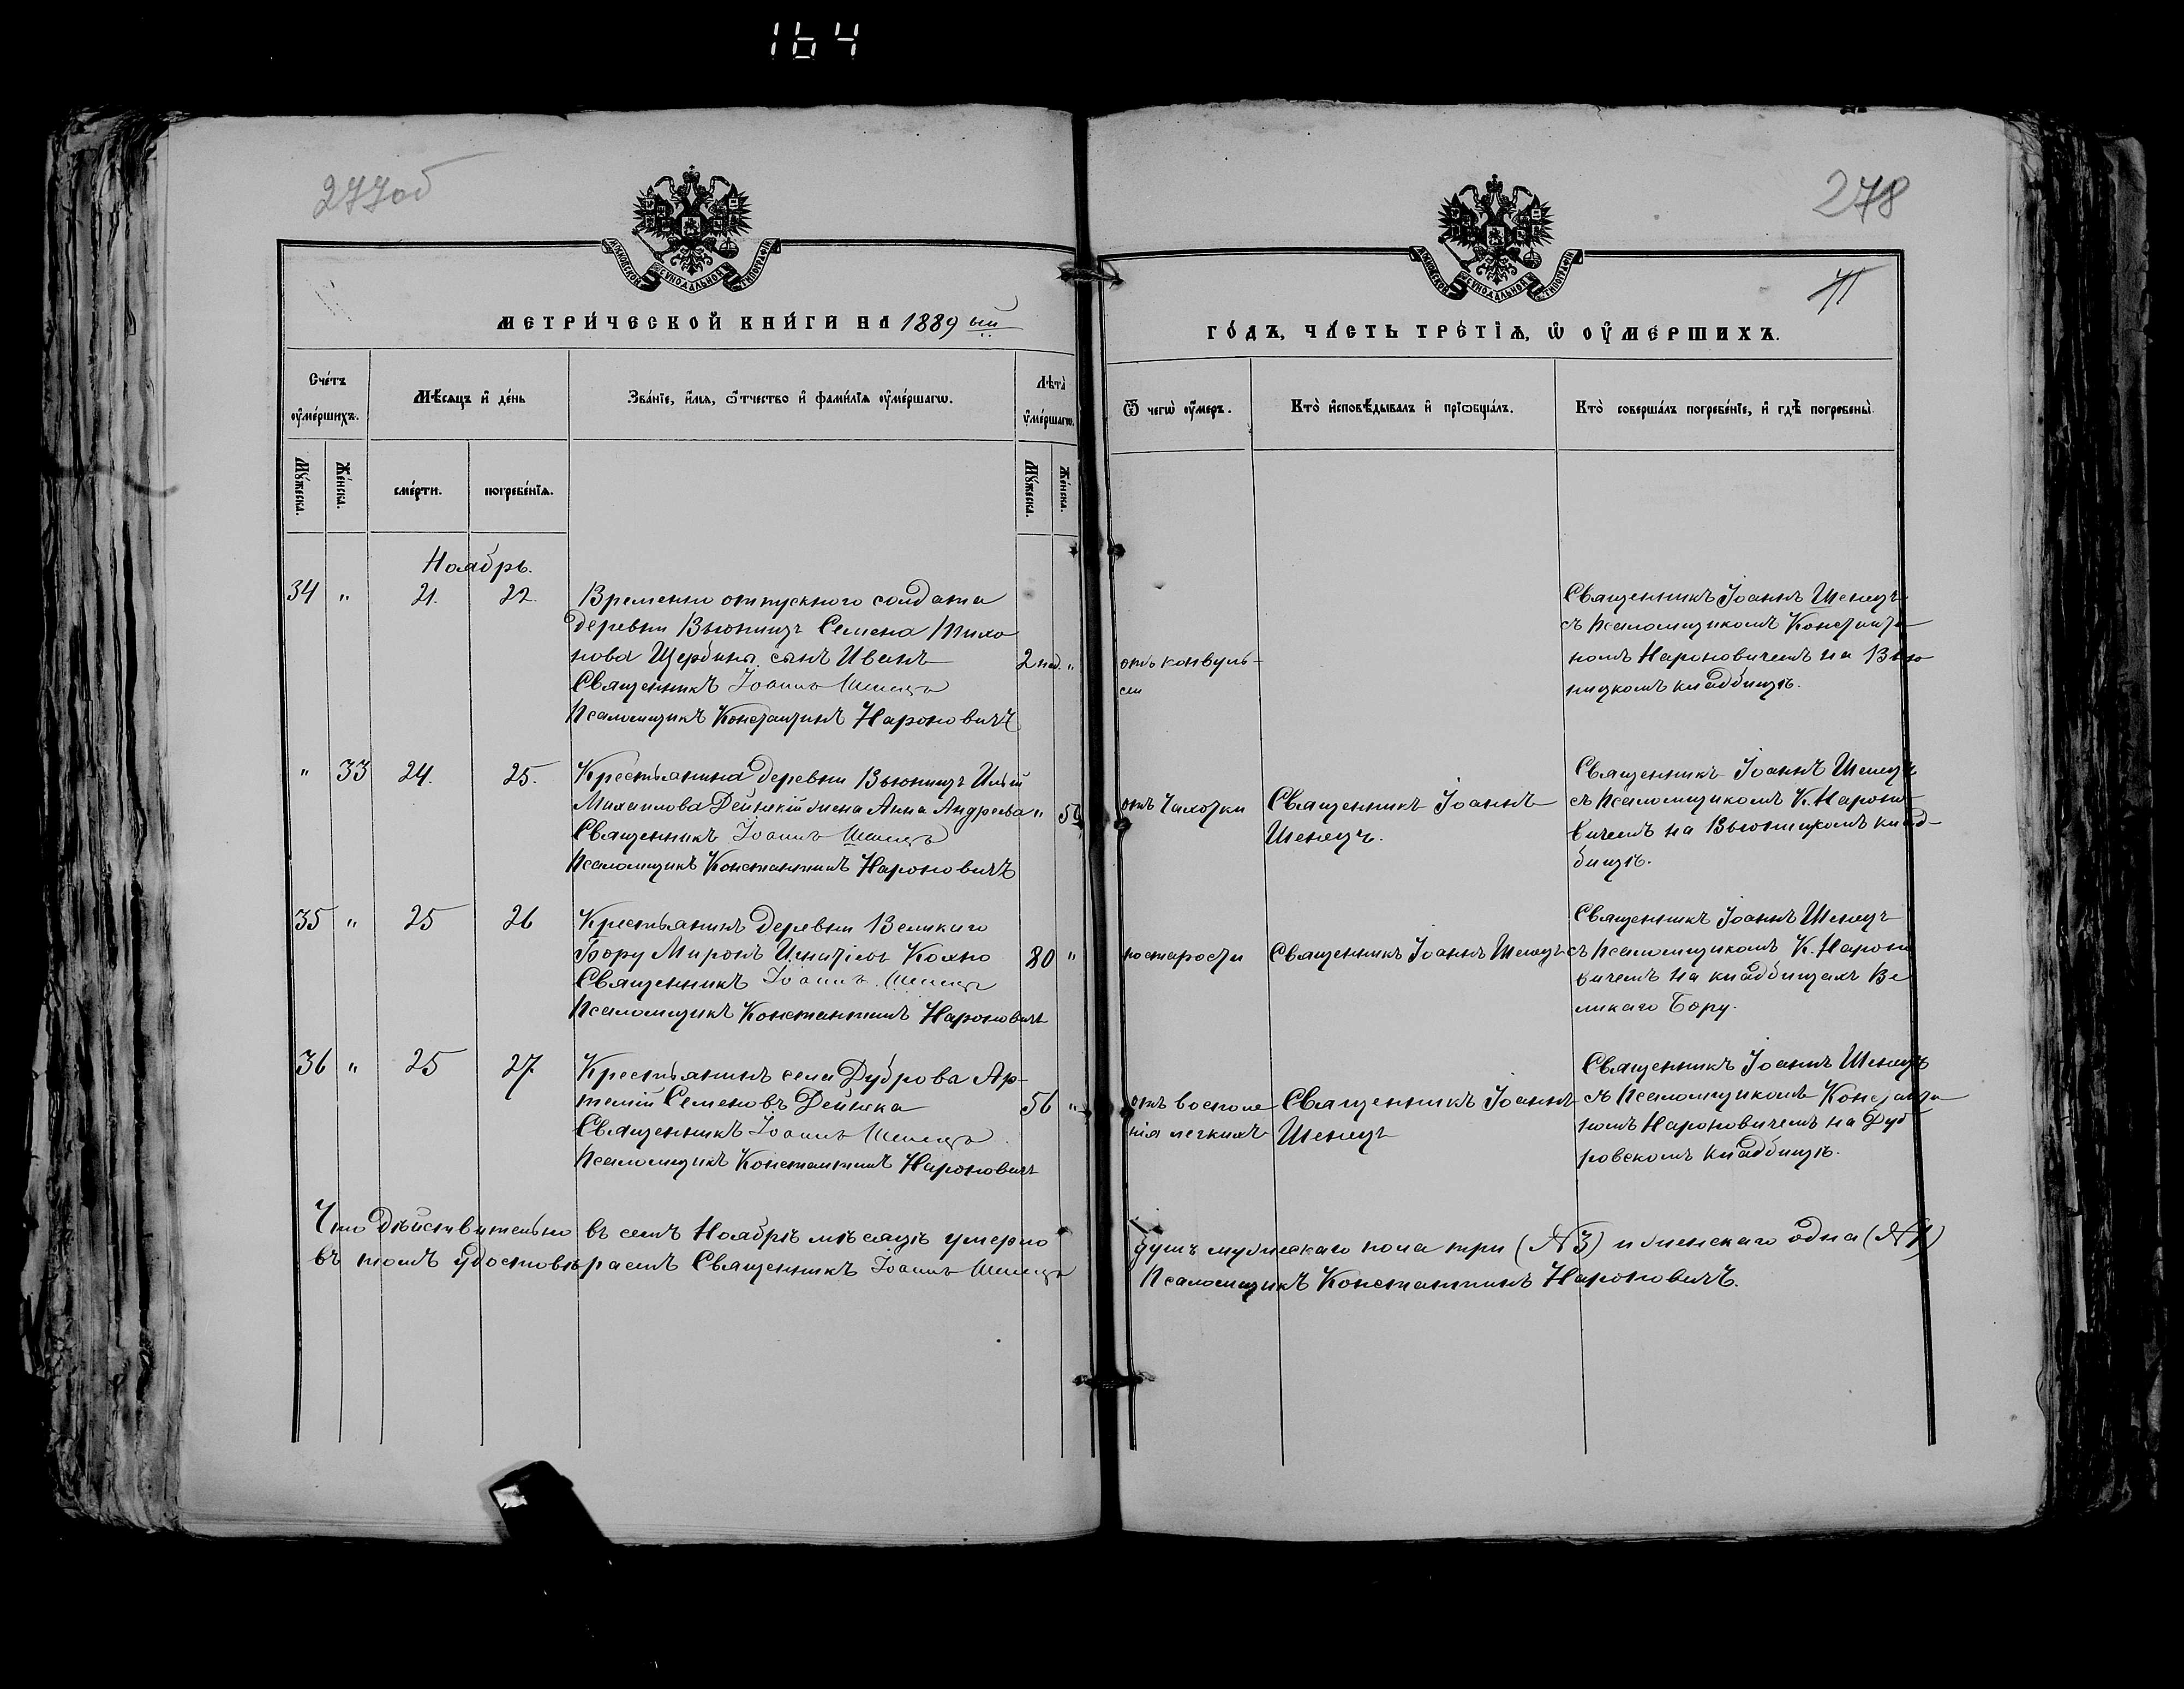 164
277об
278
МОСКОВСКОЙ СѴНОДАЛЬНОЙ ТИПОГРАФІИ
МОСКОВСКОЙ СѴНОДАЛЬНОЙ ТИПОГРАФІИ
МЕТРИ́ЧЕСКОЙ КНИ́ГИ НА 1889ый
ГО́ДЪ, ЧА́СТЬ ТРЕ́ТІѦ, Ѡ ОУ҆МЕ́РШИХЪ.
Сче́тъ оу҆ме́ршихъ.
Мѣ́сяцъ и҆ де́нь
Зва́нїе, и҆́мѧ, ѻ҆́тчество и҆ фами́лїѧ оу҆ме́ршагѡ.
Лѣ́та оу҆ме́ршагѡ.
Ѿ чегѡ̀ оу҆́меръ.
Кто̀ и҆сповѣ́дывалъ и҆ прїѡбща́лъ.
Кто̀ соверша́лъ погребе́нїе, и҆ гдѣ̀ погребены̀.
Мꙋ́жеска.
Же́нска.
сме́рти.
погребе́нїѧ.
Мꙋ́жеска.
Же́нска.
Ноябрь.
34 " 21. 22. Временно отпускного солдата
деревни Вьюнищъ Семена Тихо
нова Щербины сынъ Иванъ 2 нед. "
Священникъ Іоаннъ Шенецъ
Псаломщикъ Константинъ Нароновичъ
отъ конвуль-
сіи
Священникъ Іоаннъ Шенецъ
съ Псаломщикомъ Константи
номъ Нароновичемъ на Вью
нищкомъ кладбищѣ.
" 33 24. 25. Крестьянина деревни Вьюнищъ Ильи
Михаилова Дейнекій жена Анна Андреева "
Священникъ Іоаннъ Шенецъ
Псаломщикъ Константинъ Нароновичъ
отъ чахотки
Священникъ Іоаннъ
Шенецъ.
Священникъ Іоаннъ Шенецъ
съ Псаломщикомъ К. Нароно
вичемъ на Вьюнищкомъ клад-
бищѣ.
35 " 25 26 Крестьянинъ деревни Великаго
Бору Миронъ Игнатіевъ Кохно 80 "
Священникъ Іоаннъ Шенецъ
Псаломщикъ Константинъ Нароновичъ
по старости
Священникъ Іоаннъ Шенецъ
Священникъ Іоаннъ Шенецъ
съ Псаломщикомъ К. Нароно
вичемъ на кладбищахъ Ве
ликаго Бору.
36 " 25 27. Крестьянинъ села Дуброва Ар-
темій Семеновъ Дейнека 56 "
Священникъ Іоаннъ Шенецъ
Псаломщикъ Константинъ Нароновичъ
отъ воспале
нія легкихъ
Священникъ Іоаннъ
Шенецъ
Священникъ Іоаннъ Шенецъ
съ Псаломщикомъ Константи
номъ Нароновичемъ на Дуб
ровскомъ кладбищѣ.
Что дѣйствительно въ семъ Ноябрѣ мѣсяцѣ умерло душъ мужескаго пола три (№ 3) и женскаго одна (№ 1)
въ томъ удостовѣряемъ Священникъ Іоаннъ Шенецъ Псаломщикъ Константинъ Нароновичъ.